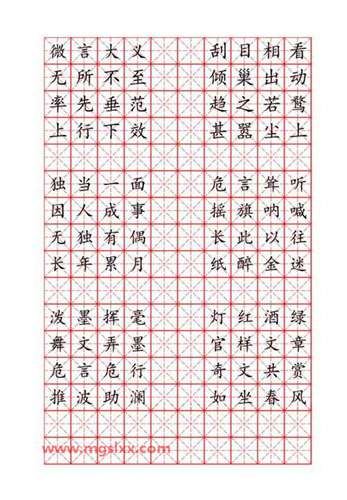 微言大义 刮目相看
无所不至 倾巢出动
率先垂范 趋之若鹜
上行下效 甚嚣尘上
独当一面 危言耸听
因人成事 摇旗呐喊
无独有偶 长此以往
长年累月 纸醉金迷
泼墨挥毫 灯红酒绿
舞文弄墨 官样文章
危言危行 奇文共赏
推波助澜 如坐春风
www.mgslxx.com